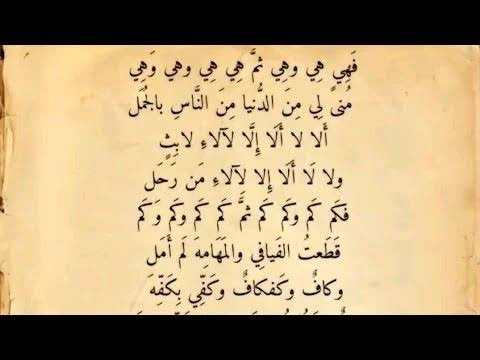 فَهِي هِي وهِي ثمَّ هِي هِي وهي وَهِي
مُنىً لِي مِنَ الدُّنيا مِنَ النَّاسِ بالجُمَل
أَلا لا أَلَا إِلَّا لآلاءِ لابِثٍ
ولا لَا أَلَا إِلا لآلاءِ مَن رَحَل
فكَم كَم وكَم كَم ثمَّ كَم كَم وكَم وَكَم
قَطَعتُ الفَيافِي والمَهَامِهَ لَم أَمَل
وكافٌ وكَفكافٌ وكَفِّي بِكَفِّهَ